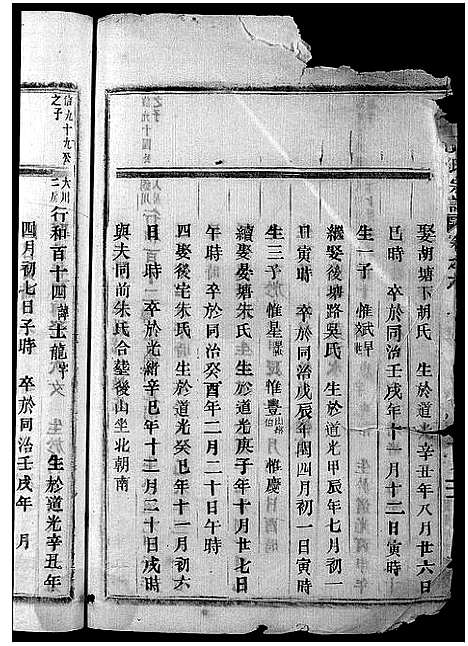 娶胡塘下胡氏 生於道光辛丑年八月廿六日
巳時 卒於同治壬戌年十一月十二日寅時
生一子 惟斌早
繼娶後塘路吳氏 生於道光甲辰年七月初一
日寅時 卒於同治戊辰年閏四月初一日寅時
生三子 惟星 惟豐 惟慶
續娶晏塘朱氏 生於道光庚子年十月廿七日
午時 卒於同治癸酉年二月二十日午時
四娶後宅朱氏 生於道光癸卯年十一月初六
日時 卒於光緒辛巳年十二月二十日戌時
與夫同前朱氏合塟後山坐北朝南
信九十九公之子
大川二子
行和百十四諱上龍 生於道光辛丑年
四月初七日子時 卒於同治壬戌年 月